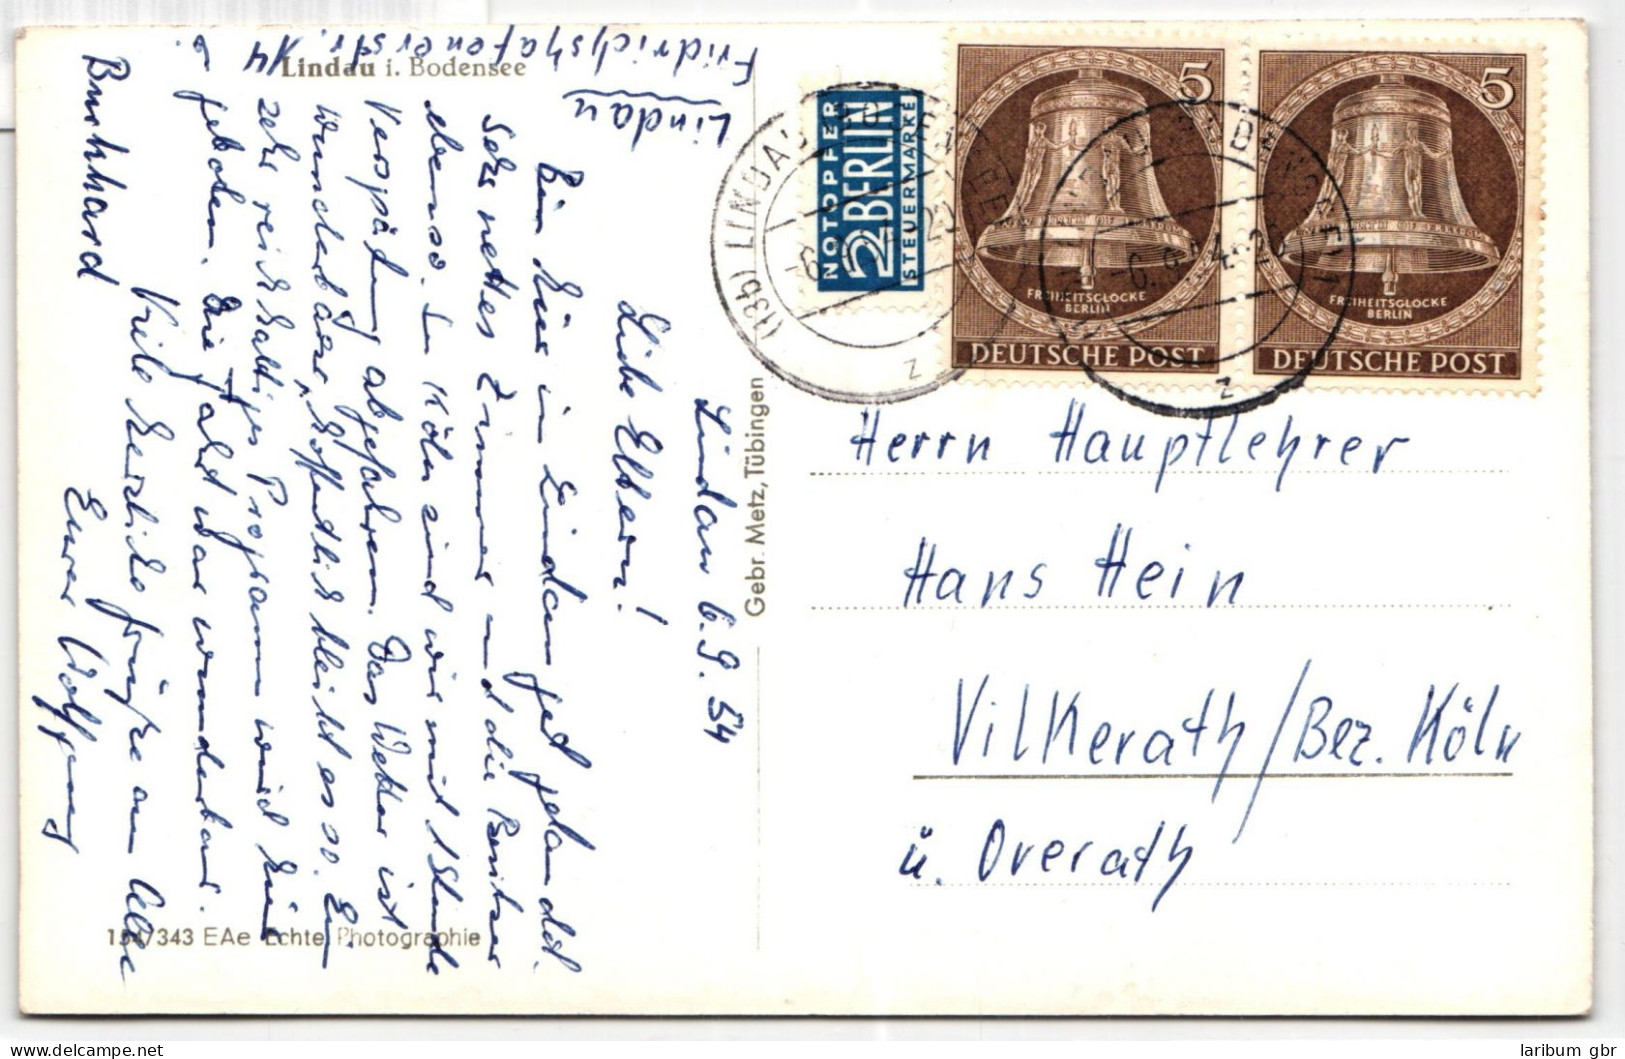 Lindau i. Bodensee
Lindau
Fridrichshafenerstr. 14
Lindau 6.9.54
Liebe Eltern!
Bin hier in Lindau gut gelandet.
Sehr nettes Zimmer und die Besitzer
ebenso. In Köln sind wir mit 1 Stunde
Verspätung abgefahren. Das Wetter ist
wunderbar, hoffentlich bleibt es so. Ein
sehr reichhaltiges Programm wird hier
geboten. Die Fahrt war wunderbar.
Viele herzliche Grüße an alle
Euer Wolfgang
Burkhard
Gebr. Metz, Tübingen
154/343 EAe Echte Photographie
NOTOPFER
2 BERLIN
STEUERMARKE
5
FREIHEITSGLOCKE
BERLIN
DEUTSCHE POST
5
FREIHEITSGLOCKE
BERLIN
DEUTSCHE POST
(13b) LINDAU (BODENSEE)
-6.9.54.-20
z
-6.9.54.-20
z
Herrn Hauptlehrer
Hans Hein
Vilkerath/Bez. Köln
ü. Overath
laribum gbr